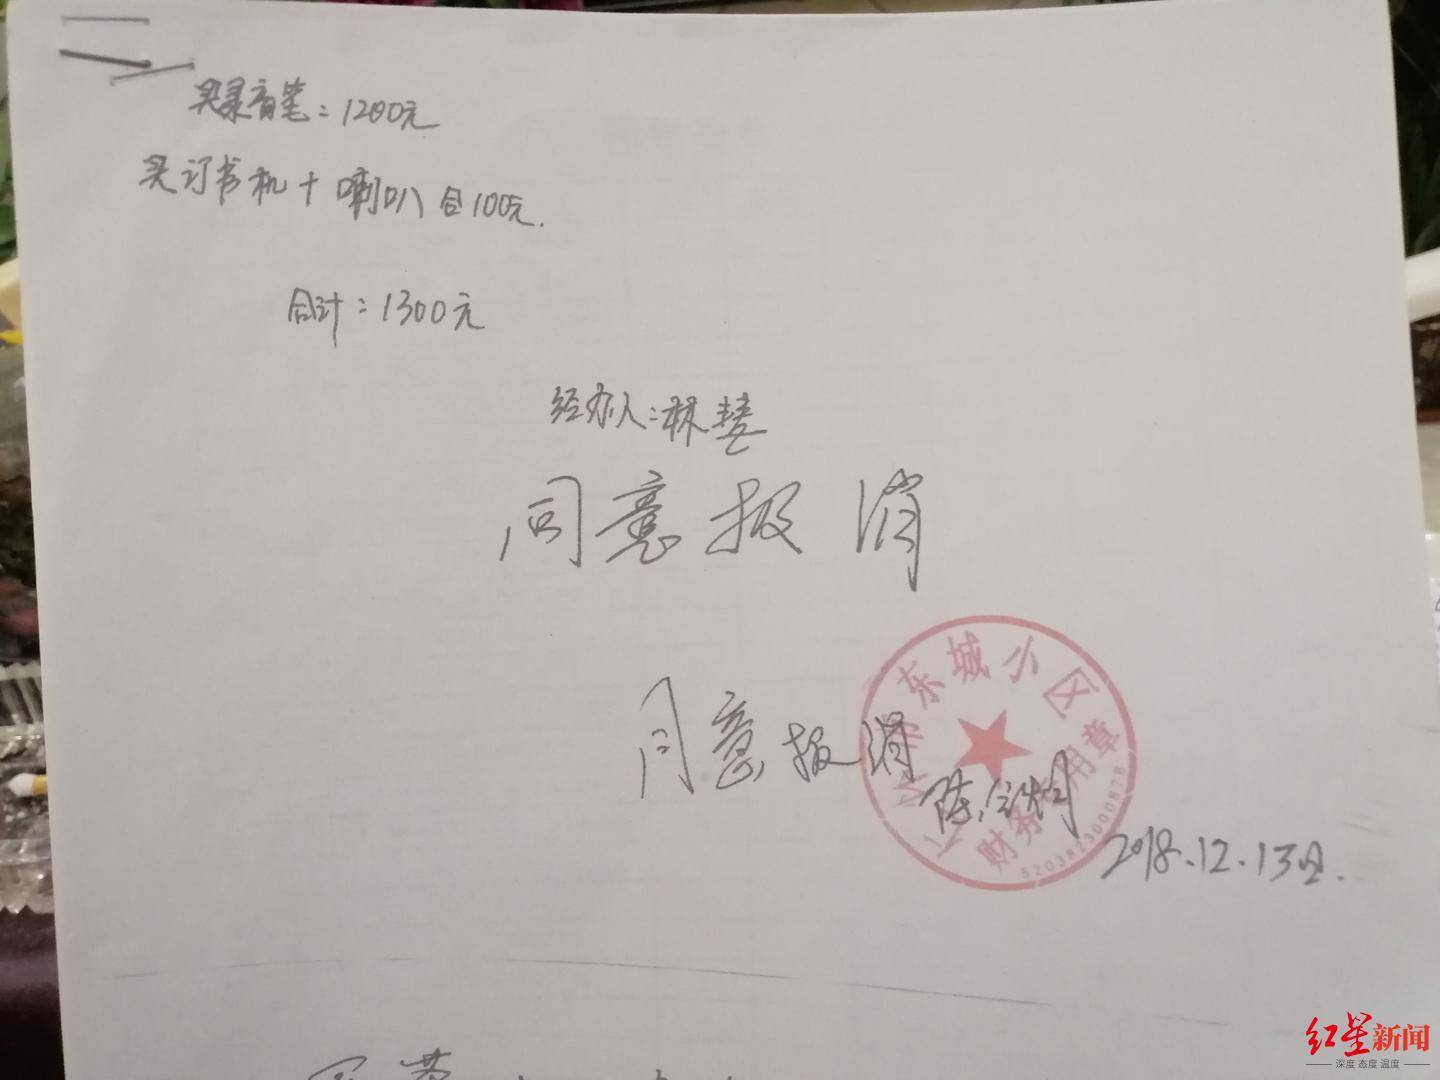 买录音笔:1200元
买订书机+喇叭合100元.
合计:1300元
经办人:林楚
同意报消
同意报消
东城小区
财务专用章
5203823000878
2018.12.13日.
红星新闻
深度 态度 温度